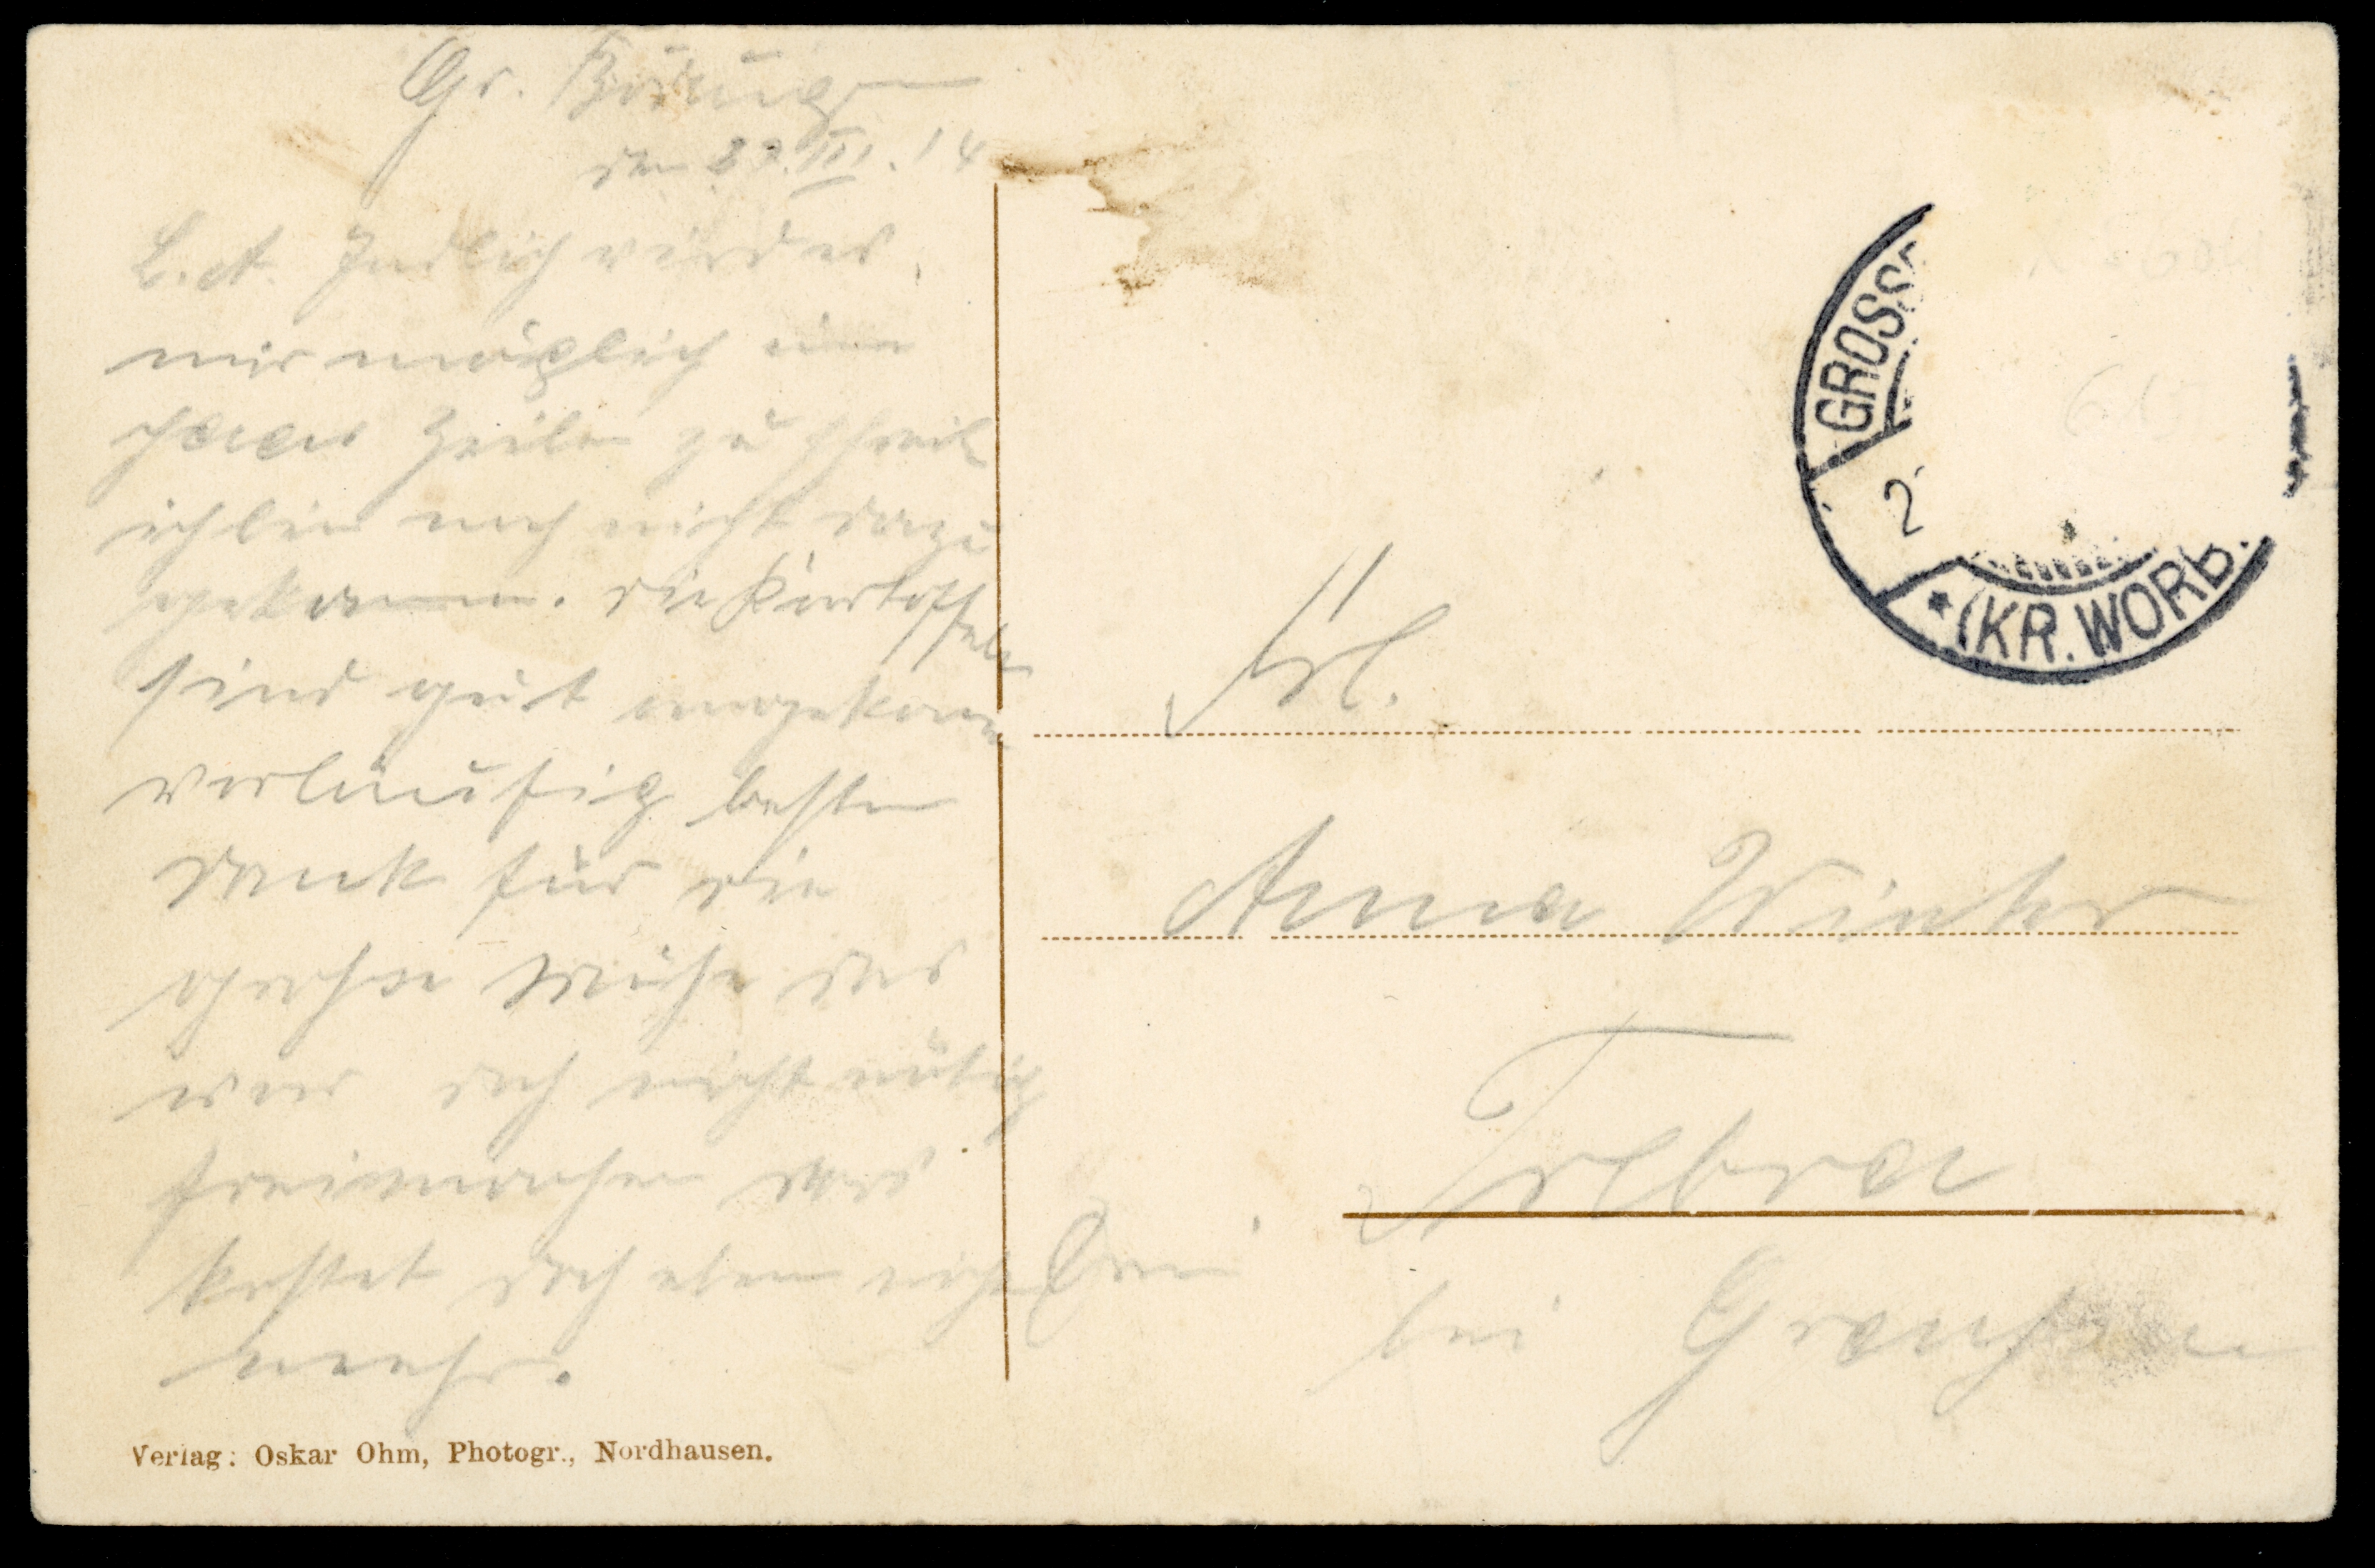 Gr. Bodungen
den 22.III.14
L. A. Endlich wird es
mir möglich ein
paar Zeilen zu schreib
ich bin noch nicht dazu
gekommen. die Kartoffeln
sind gut angekomm
vorläufig besten
Dank für die
große Mühe das
war doch nicht nötig
freimachen das
kostet doch eben nicht
mehr.
GROSS
2
* (KR. WORB
Frl.
Anna Winter
Trebra
bei
Verlag: Oskar Ohm, Photogr., Nordhausen.